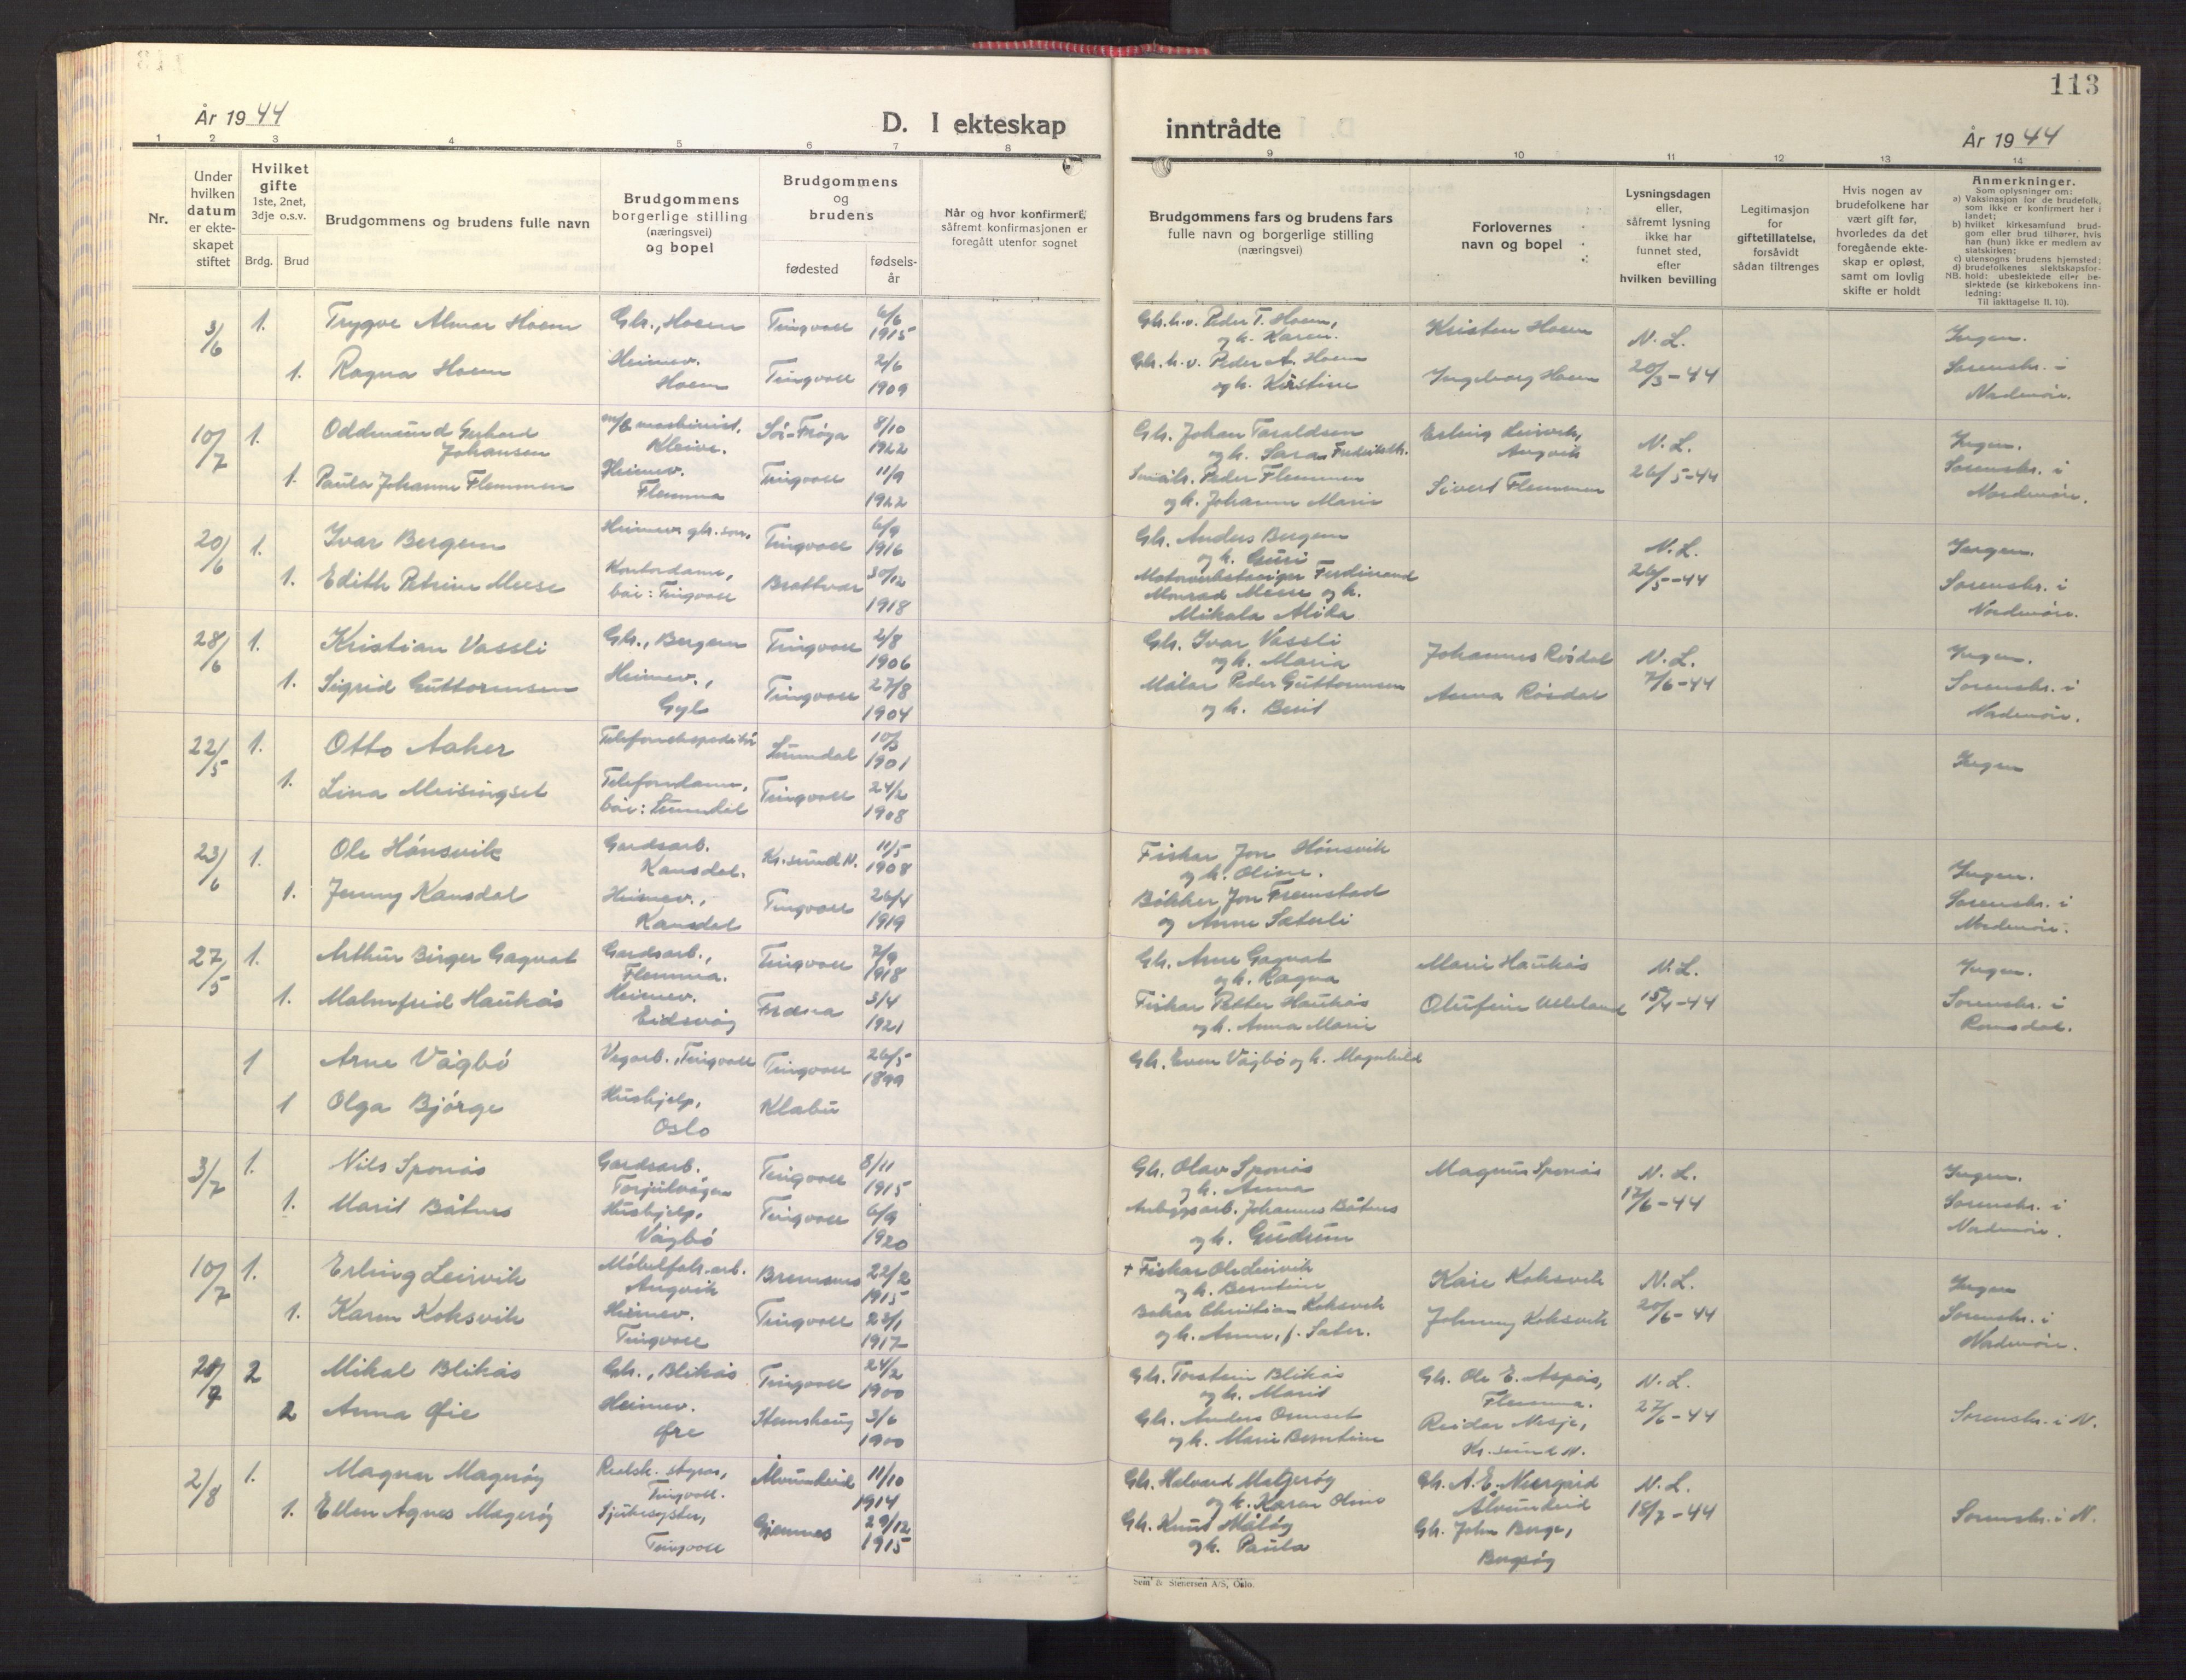 113
År 1944
D. I ekteskap
inntrådte
År 1944
1 2 3 4 5 6 7 8 9 10 11 12 13 14
Nr.
Under
hvilken
datum
er ekte-
skapet
stiftet
Hvilket
gifte
1ste, 2net,
3dje o.s.v.
Brdg. Brud
Brudgommens og brudens fulle navn
Brudgommens
borgerlige stilling
(næringsvei)
og bopel
Brudgommens
og
brudens
fødested
fødsels-
år
Når og hvor konfirmert,
såfremt konfirmasjonen er
foregått utenfor sognet
Brudgommens fars og brudens fars
fulle navn og borgerlige stilling
(næringsvei)
Forlovernes
navn og bopel
Lysningsdagen
eller,
såfremt lysning
ikke har
funnet sted,
efter
hvilken bevilling
Legitimasjon
for
giftetillatelse,
forsåvidt
sådan tiltrenges
Hvis nogen av
brudefolkene har
vært gift før,
hvorledes da det
foregående ekte-
skap er opløst,
samt om lovlig
skifte er holdt
Anmerkninger.
Som oplysninger om:
a) Vaksinasjon for de brudefolk,
som ikke er konfirmert her i
landet;
b) hvilket kirkesamfund brud-
gom eller brud tilhører, hvis
han (hun) ikke er medlem av
statskirken;
c) utensogns brudens hjemsted;
d) brudefolkenes slektskapsfor-
NB. hold: ubeslektede eller be-
slektede (se kirkebokens inn-
ledning:
Til iakttagelse II. 10).
3/6 1. Trygve Almar Hoem Gbr., Hoem Tingvoll 6/6 1915 Gbr. h.v. Peder T. Hoem, og h. Karen. Kristen Hoem N. L. Ingen.
1. Ragna Hoem Heimev. Hoem Tingvoll 2/6 1909 Gbr. h.v. Peder A. Hoem og h. Kirstine Ingeborg Hoem 20/3-44 Sorenskr. i Nordmøre.
10/7 1. Oddmund Gerhard Johansen m/b maskinist, Kleive. Sør-Frøya 8/10 1922 Gbr. Johan Taraldsen og h. Sara Erling Leirvik, Angvik N. L. Ingen.
1. Paula Johanne Flemmen Heimev. Flemma Tingvoll 11/9 1922 Småbr. Peder Flemmen og h. Johanne Marie Sivert Flemmen 26/5-44 Sorenskr. i Nordmøre.
20/6 1. Ivar Bergem Heimev. gbr. søn. Tingvoll 6/9 1916 Gbr. Anders Bergem og h. Guri N. L. Ingen.
1. Edith Petrine Meese Kontordame, bor: Tingvoll Brattvær 30/12 1918 Ferdinand Monrad Meese og h. Mikala Alida 26/5-44 Sorenskr. i Nordmøre.
28/6 1. Kristian Vassli Gbr., Bergem Tingvoll 2/8 1906 Gbr. Ivar Vassli og h. Maria Johannes Rösdal N. L. Ingen.
1. Sigrid Guttormsen Heimev., Gyl Tingvoll 27/8 1904 Målar Peder Guttormsen og h. Berit Anna Rösdal 7/6-44 Sorenskr. i Nordmøre.
22/5 1. Otto Aaker Telefonekspeditör Sunndal 10/3 1901 Ingen
1. Lina Meisingset Telefondame, bor: Sunndal Tingvoll 24/2 1908
23/6 1. Ole Hönsvik Gardsarb. Kansdal. Kr.sund N. 11/5 1908 Fiskar Jon Hönsvik og h. Oline. Ingen.
1. Jenny Kansdal Heimev., Kansdal Tingvoll 26/4 1919 Bökker Jon Fremstad og Anne Sæterli Sorenskr. i Nordmøre.
27/5 1. Arthur Birger Gagnat Gardsarb., Flemma. Tingvoll 7/9 1918 Gbr. Arne Gagnat og h. Ragna Marie Haukås N. L. Ingen.
1. Malmfrid Haukås Heimev. Eidsvåg Fræna 3/4 1921 Fiskar Petter Haukås og h. Anna Marie Olufine Ulleland 15/4-44 Sorenskr. i Romsdal.
1 Arne Vågbö Vegarb., Tingvoll Tingvoll 26/5 1899 Gbr. Even Vågbö og h. Magnhild
1 Olga Björge Hushjelp, Oslo Klæbu
3/7 1. Nils Sponås Gardsarb. Torjulvågen Tingvoll 8/11 1915 Gbr. Olav Sponås og h. Anna Magnus Sponås N. L. Ingen.
1. Marit Båtnes Hushjelp, Vågbö Tingvoll 6/9 1920 Anleggsarb. Johannes Båtnes og h. Gudrun 17/6-44 Sorenskr. i Nordmøre.
10/7 1. Erling Leirvik Möbelfabr.arb. Angvik Bremsnes 22/2 1915 + Fiskar Ole Leirvik og h. Berntine Kåre Koksvik N. L. Ingen
1. Karen Koksvik Heimev. Tingvoll Tingvoll 23/1 1917 Baker Christian Koksvik og h. Anne, f. Sæter. Johnny Koksvik 20/6-44 Sorenskr. i Nordmøre.
2 Mikal Blikås Gbr., Blikås Tingvoll 24/2 1900 Gbr. Torstein Blikås og h. Marit Gbr. Ole E. Aspås, Flemma. N. L.
2 Anna Øie Heimev. Øre Stemshaug 3/6 1900 Gbr. Anders Ormset og h. Marie Berntine Reidar Nesje, Kr. sund N. 27/6-44 Sorenskr. i N.
2/8 1. Magnar Magerøy Realsk. styrar, Tingvoll. Ålvundeid 11/10 1914 Gbr. Halvard Magerøy og h. Karen Oline Gbr. A. E. Neergård Ålvundeid N. L.
1. Ellen Agnes Magerøy Sjukesyster, Tingvoll Gjemnes 29/12 1915 Gbr. Knut Måløy og h. Paula Gbr. John Berge, Bergsøy 18/7-44 Sorenskr. i N.
Sem & Stenersen A/S, Oslo.